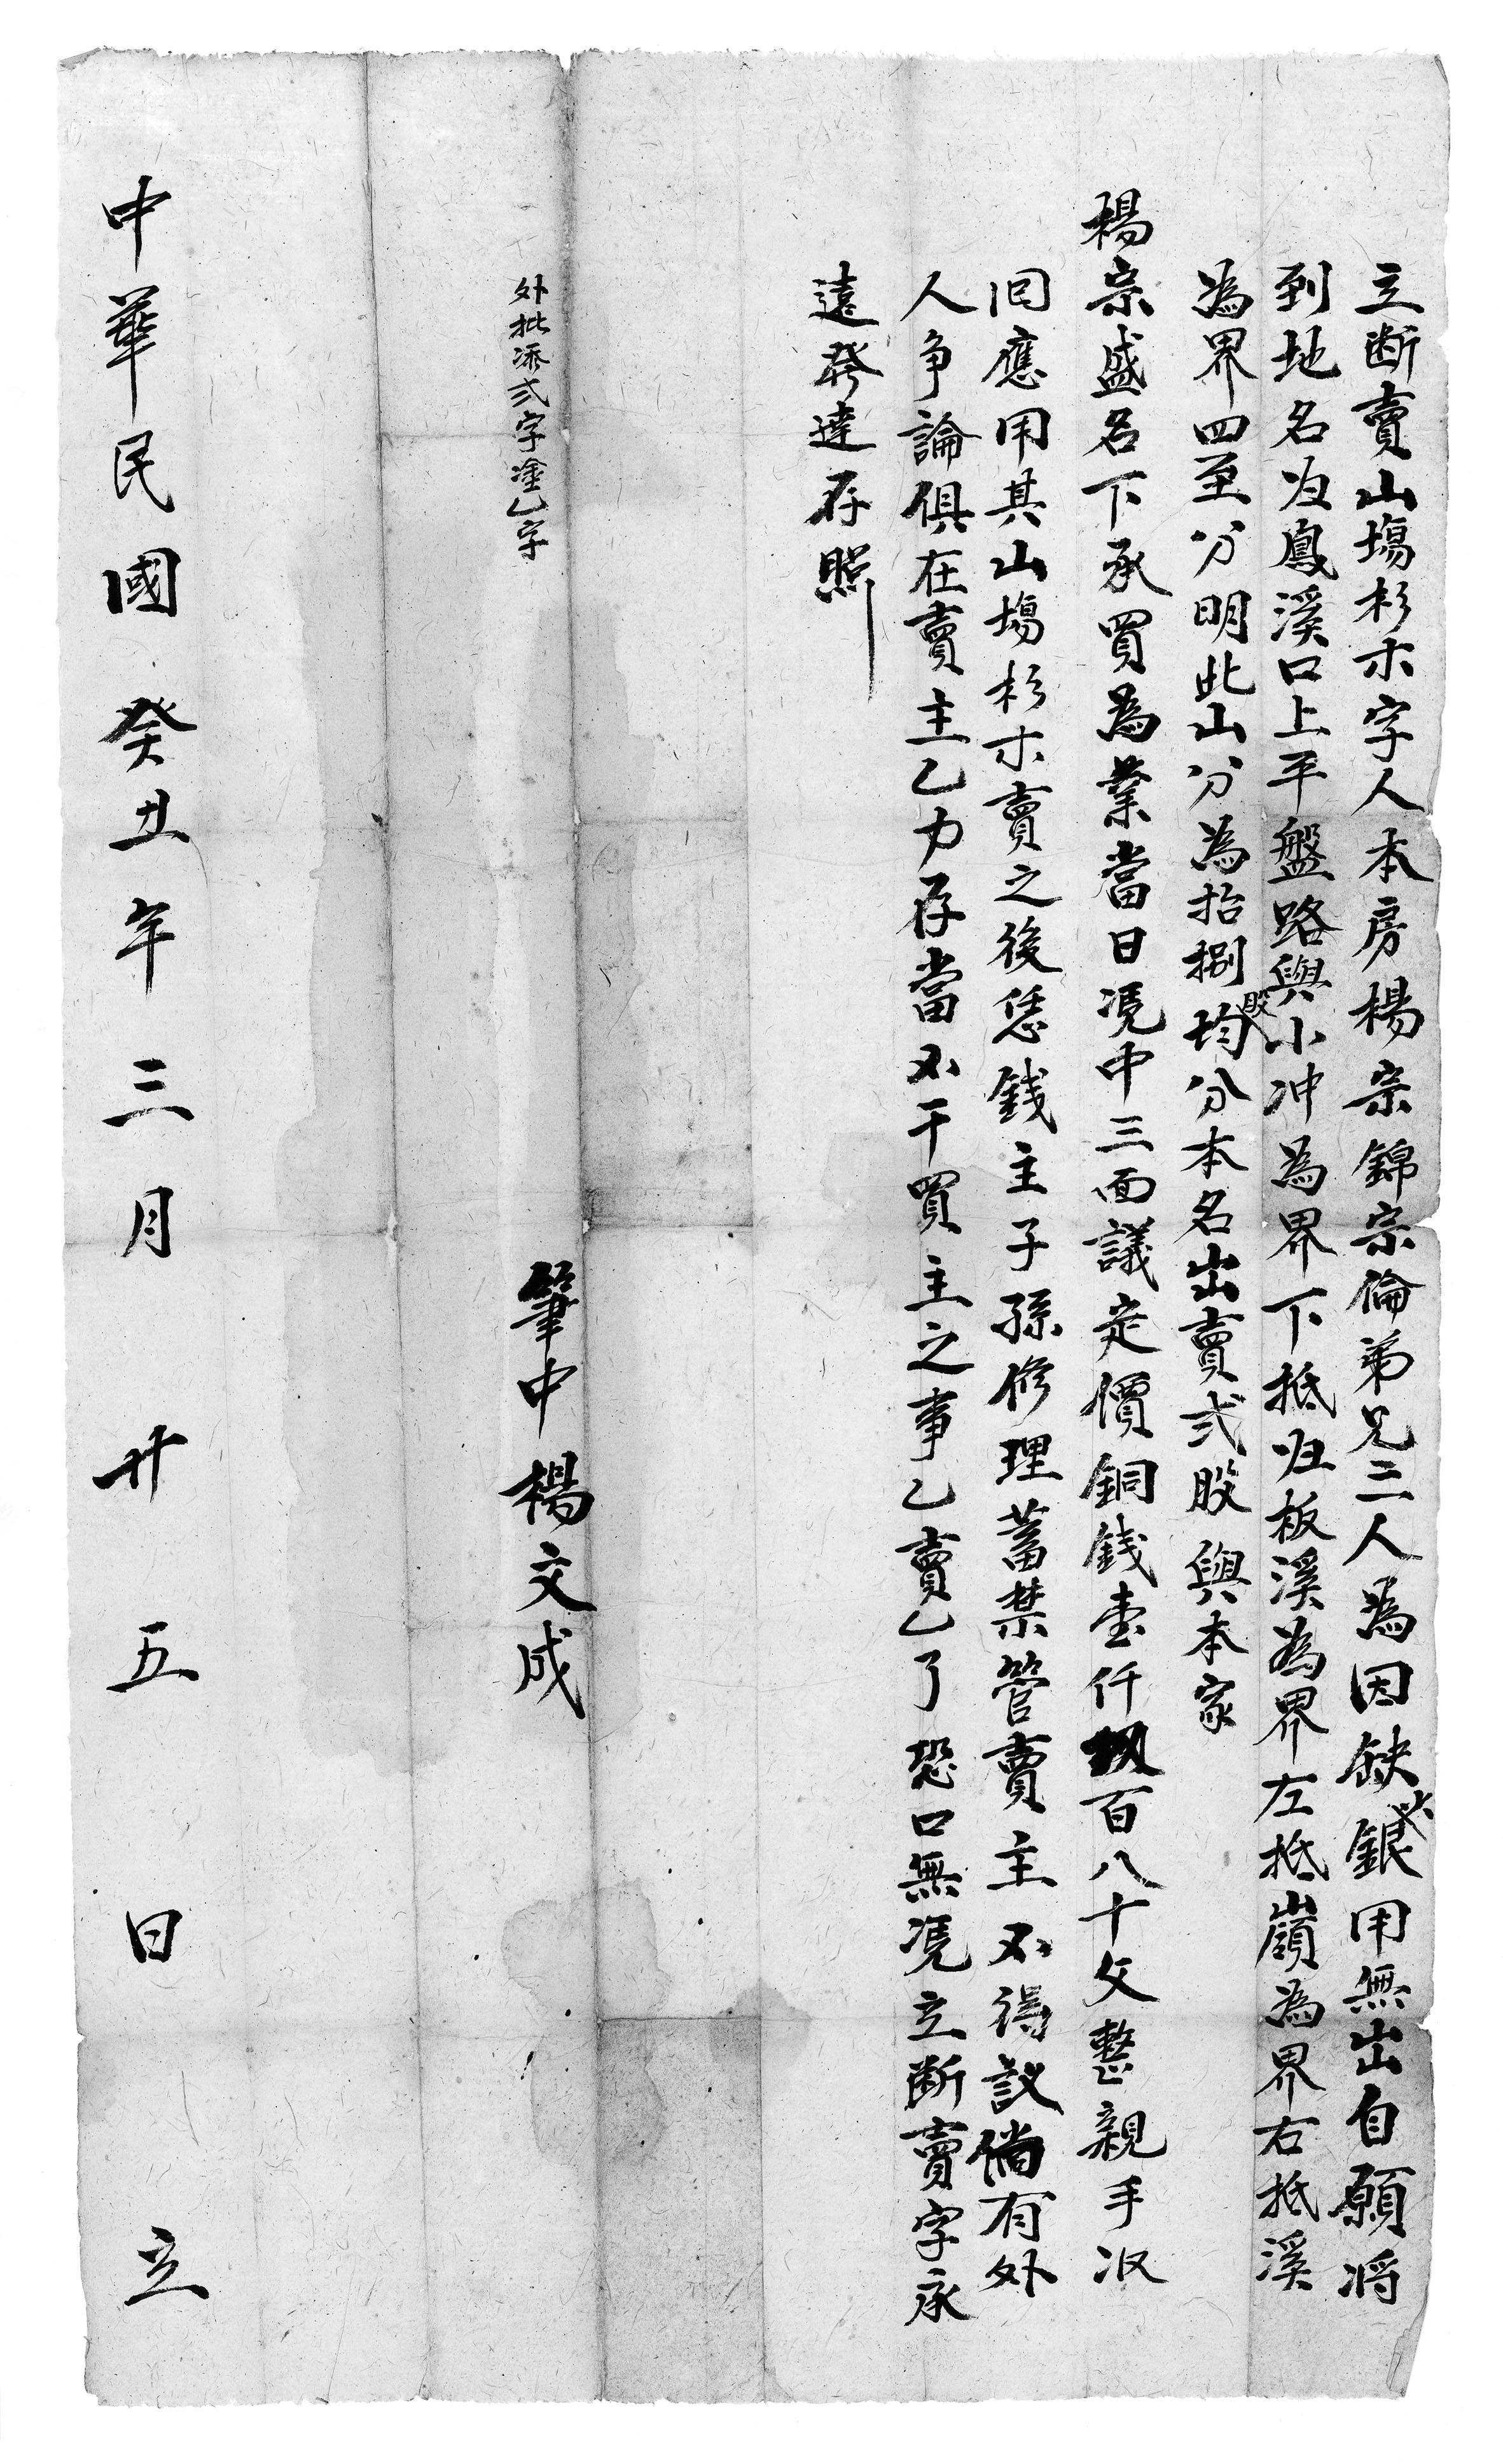 立断賣山塲杉木字人本房楊宗錦宗倫弟兄二人為因缺少銀用無出自願將
到地名为鳳溪口上平盤路與小冲為界下抵归板溪為界左抵嶺為界右抵溪
為界四至分明此山分為拾捌股均分本名出賣弍股與本家
楊宗盛名下承買為業當日凴中三面議定價銅錢壹仟百八十文整親手収
回應用其山塲杉木賣之後恁錢主子孫修理蓄禁管賣主不得議倘有外
人争論俱在賣主乙力存當不干買主之事乙賣乙了恐口無凴立断賣字永
遠發達存照
外批添弍字塗乙字
筆中楊文成
中華民國癸丑年三月廿五日立